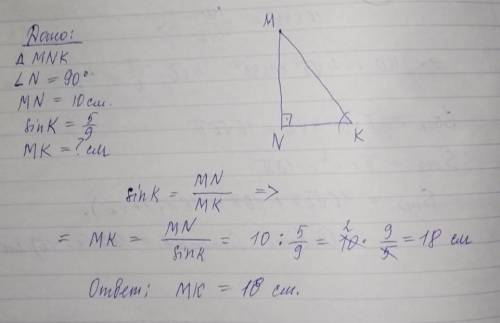 Дано:
△ MNK
∠N = 90°
MN = 10 см.
sin K = 5/9
MK = ? см
M
N
K
sin K = MN/MK =>
= MK = MN/sin K = 10 : 5/9 = 10 2 · 9/5 = 18 см
Ответ: MK = 18 см.